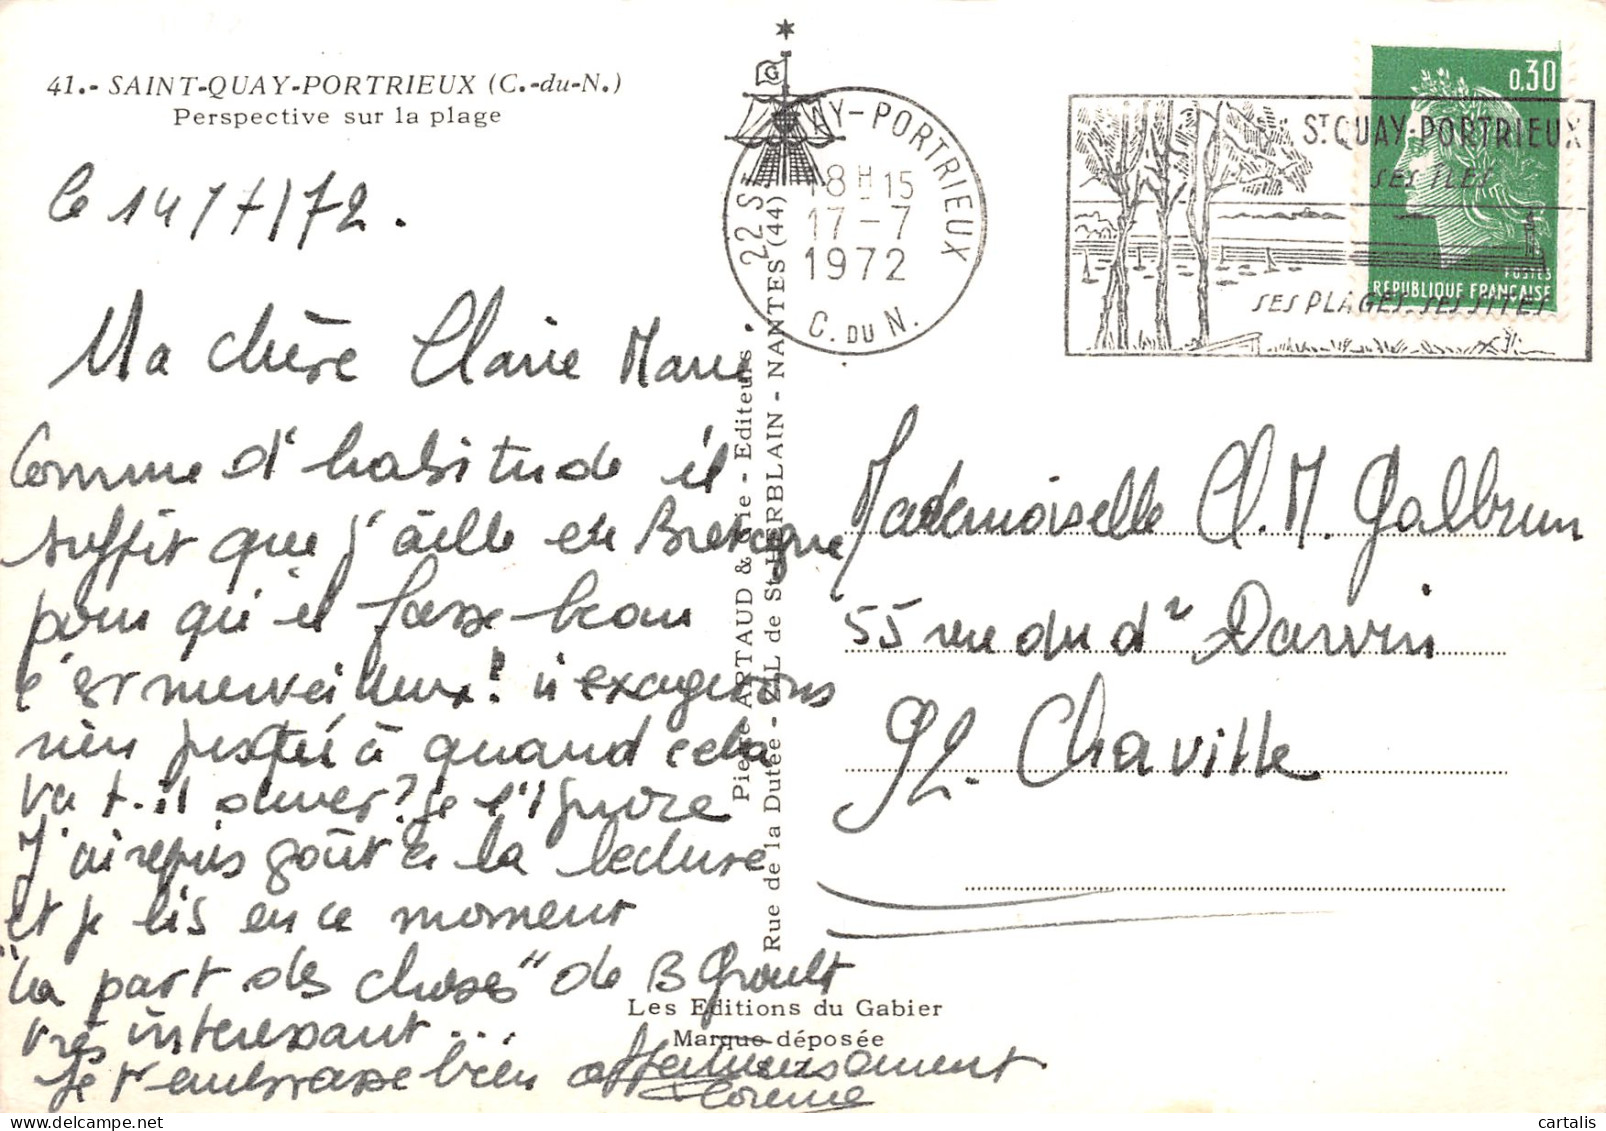 41.- SAINT-QUAY-PORTRIEUX (C.-du-N.)
Perspective sur la plage
le 14/7/72.
Ma chère Claire Marie
Comme d'habitude il
suffit que j'aille en Bretagne
pour qu'il fasse beau
c'est merveilleux! n'exagérons
rien jusqu'à quand cela
va t-il durer? je l'ignore
J'ai repris goût à la lecture
et je lis en ce moment
"la part des choses" de B Groult
très intéressant...
Je t'embrasse bien affectueusement
Pierre ARTAUD & Cie - Editeurs
Rue de la Dutée - Z.I.L de St-HERBLAIN - NANTES (44)
Les Editions du Gabier
Marque déposée
G
22 ST QUAY-PORTRIEUX
18H15
17-7
1972
C. DU N.
ST QUAY-PORTRIEUX
SES ILES
SES PLAGES. SES SITES
0,30
POSTES
REPUBLIQUE FRANÇAISE
Mademoiselle Cl. M. Galbrun
55 rue du dr Darwin
92. Chaville
cartalis